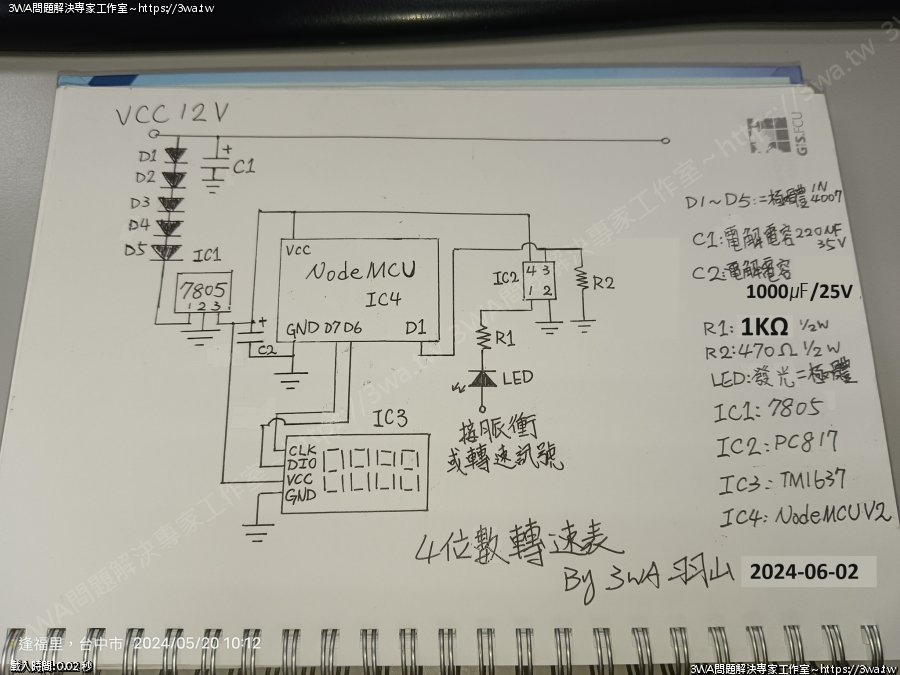 3WA問題解決專家工作室~https://3wa.tw
VCC 12V
GIS.FCU
D1
D2
D3
D4
D5
C1
IC1
7805
1 2 3
C2
VCC
NodeMCU
IC4
GND D7 D6 D1
IC2
4 3
1 2
R2
R1
LED
接脈衝
或轉速訊號
IC3
CLK
DIO
VCC
GND
D1~D5:二極體 1N4007
C1:電解電容 220uF 35V
C2:電解電容
1000μF/25V
R1: 1KΩ 1/2W
R2:470Ω 1/2W
LED:發光二極體
IC1: 7805
IC2: PC817
IC3: TM1637
IC4: NodeMCU V2
4位數轉速表
By 3WA 羽山
2024-06-02
逢福里,台中市 2024/05/20 10:12
載入時間:0.02 秒
3WA問題解決專家工作室~https://3wa.tw